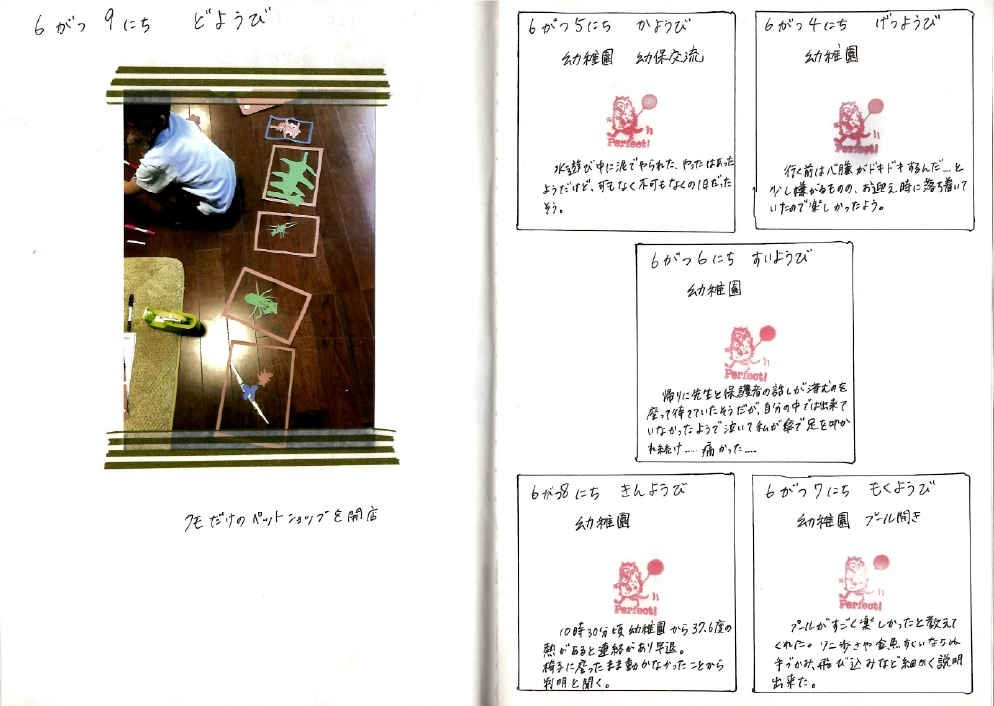 6がつ9にち どようび
クモだけのペットショップを開店
6がつ5にち かようび
幼稚園 幼保交流
Perfect!
水遊が中に泥でやられた、やったはあった
ようだけど、可もなく不可もなくの1日だった
そう。
6がつ4にち げつようび
幼稚園
Perfect!
行く前は心臓がドキドキするんだ…と
少し嫌がるものの、お迎え時に落ち着いて
いたので楽しかったよう。
6がつ6にち すいようび
幼稚園
Perfect!
帰りに先生と保護者の話しが済むのを
座って待てていたそうだが、自分の中では出来て
いなかったようで泣いて私が傘で足を叩か
れ続け…… 痛かった……
6がつ8にち きんようび
幼稚園
Perfect!
10時30分頃幼稚園から37.6度の
熱があると連絡があり早退。
椅子に座ったまま動かなかったことから
判明と聞く。
6がつ7にち もくようび
幼稚園 プール開き
Perfect!
プールがすごく楽しかったと教えて
くれた。ワニ歩きや金魚すくいならぬ
手づかみ、飛び込みなど細かく説明
出来た。